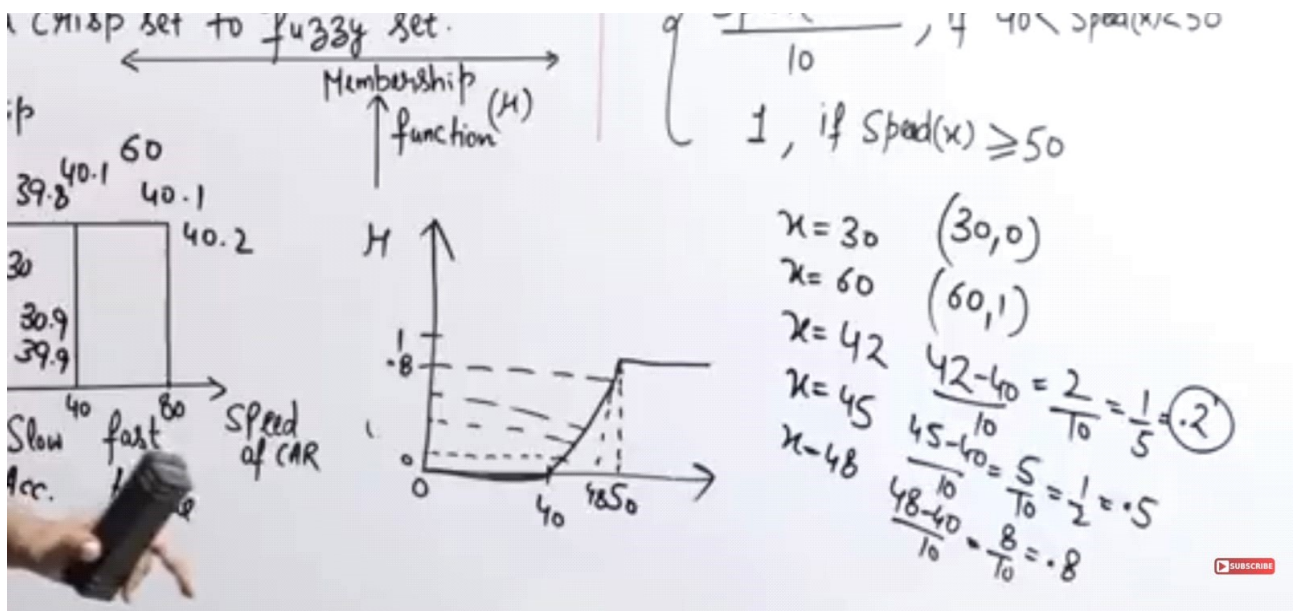 Crisp set to fuzzy set.
Membership
function (μ)
60
39.8 40.1 40.1
40.2
30
30.9
39.9
40 80
Slow fast
Speed
of CAR
Acc.
μ
1
.8
0
0 40 48 50
10 , if 40< Speed(x)<50
1, if Speed(x) ⩾50
x=30 (30,0)
x=60 (60,1)
x=42 42-40/10 = 2/10 = 1/5 = .2
x=45 45-40/10 = 5/10 = 1/2 = .5
x-48 48-40/10 - 8/10 = .8
SUBSCRIBE